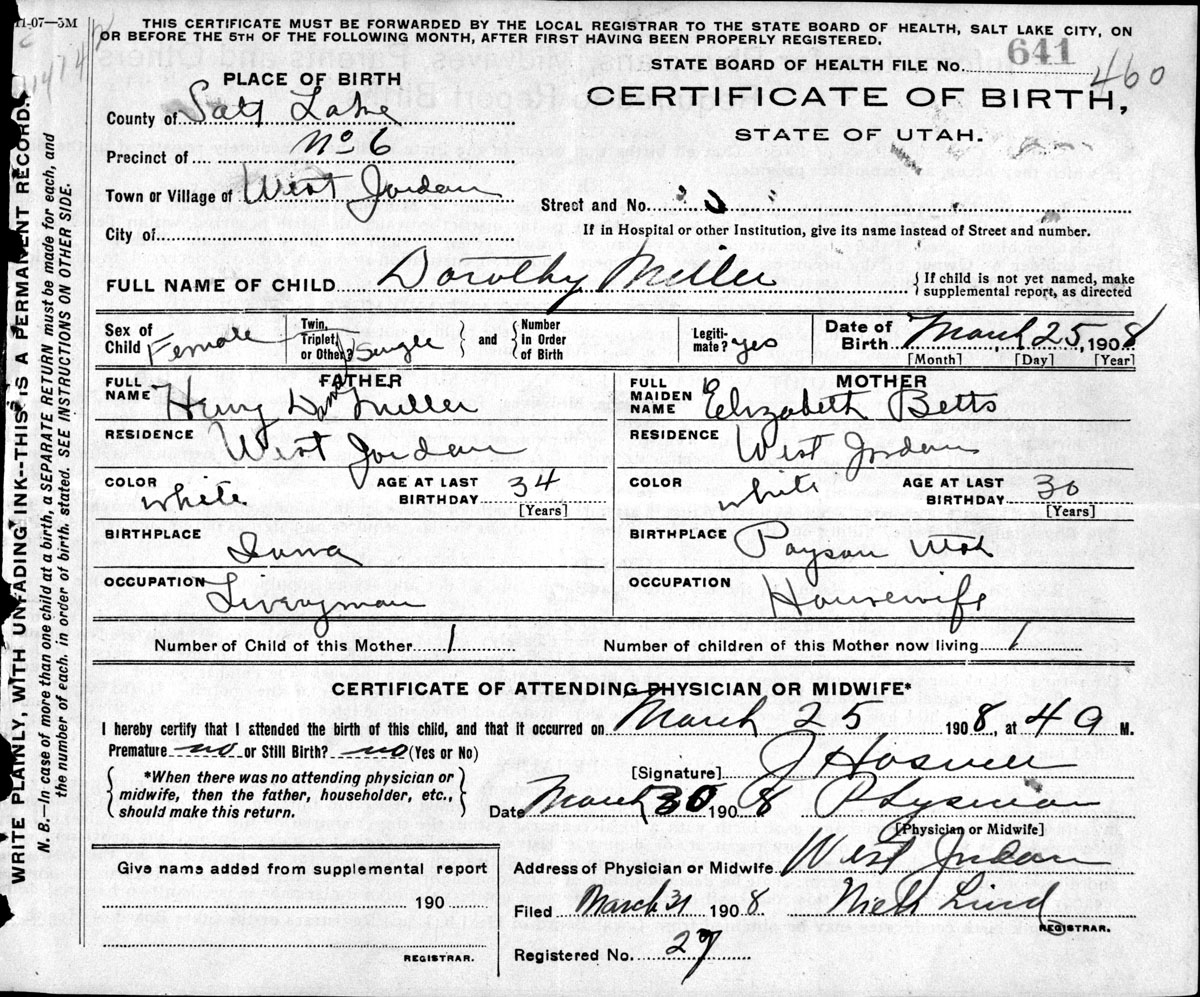 11-07—5M
THIS CERTIFICATE MUST BE FORWARDED BY THE LOCAL REGISTRAR TO THE STATE BOARD OF HEALTH, SALT LAKE CITY, ON
OR BEFORE THE 5TH OF THE FOLLOWING MONTH, AFTER FIRST HAVING BEEN PROPERLY REGISTERED.
STATE BOARD OF HEALTH FILE No. 641
460
CERTIFICATE OF BIRTH,
STATE OF UTAH.
PLACE OF BIRTH
County of Salt Lake
Precinct of No 6
Town or Village of West Jordan
Street and No.
City of
If in Hospital or other Institution, give its name instead of Street and number.
FULL NAME OF CHILD Dorothy Miller { If child is not yet named, make
supplemental report, as directed
Sex of Child Female Twin, Triplet, or Other? Single } and { Number In Order of Birth Legiti-mate? yes Date of Birth March 25, 1908
[Month] [Day] [Year]
FATHER
FULL NAME Henry Dan Miller
RESIDENCE West Jordan
COLOR White AGE AT LAST BIRTHDAY 34
[Years]
BIRTHPLACE Iowa
OCCUPATION Liveryman
MOTHER
FULL MAIDEN NAME Elizabeth Betts
RESIDENCE West Jordan
COLOR White AGE AT LAST BIRTHDAY 30
[Years]
BIRTHPLACE Payson Utah
OCCUPATION Housewife
Number of Child of this Mother 1 Number of children of this Mother now living 1
CERTIFICATE OF ATTENDING PHYSICIAN OR MIDWIFE*
I hereby certify that I attended the birth of this child, and that it occurred on March 25 1908, at 4 a M.
Premature no or Still Birth? no (Yes or No)
*When there was no attending physician or
midwife, then the father, householder, etc.,
should make this return.
[Signature] J
Date March 30 1908 Physician
[Physician or Midwife]
Address of Physician or Midwife West Jordan
Filed March 31 1908 Niels Lind
REGISTRAR.
Registered No. 27
Give name added from supplemental report
190
REGISTRAR.
WRITE PLAINLY, WITH UNFADING INK--THIS IS A PERMANENT RECORD.
N. B.—In case of more than one child at a birth, a SEPARATE RETURN must be made for each, and
the number of each. in order of birth. stated. SEE INSTRUCTIONS ON OTHER SIDE.